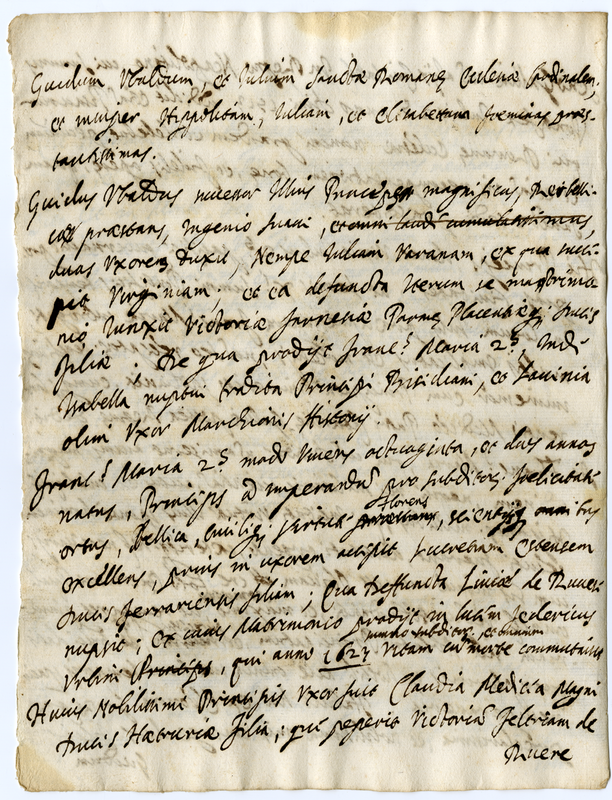 Guidum Vbaldum, et Iulium Sanctæ Romanę Eclesiæ Cardinalem,
et mulier Hippolitam, Iuliam, et Elisabettam foeminas præs-
tantissimas.
Guidus Vbaldus successor Illius Princeps magnificus, rei belli-
cæ præstans, ingenio suavi, et omni laude cumulatissimus,
duas Vxores duxit Nempe Iuliam Varanam, ex qua susce-
pit Virginiam; et ea defuncta iterum se matrimo-
nio iunxit Victoriæ Farnesiæ Parmę Placentięq; Ducis
filiæ; De qua prodijt Franc.s Maria 2.s, Inde
Isabella nuptui tradita Principi Bisiliani, et Lavinia
olim Vxor Marchionis Histonij.
Franc.s Maria 2.s modo vivens octuaginta, et duos annos
natus, Princeps ad imperandū pro subditorȝ felicitate
ortus, bellica, civiliq; virtute florens, scientijsq; omnibus
excellens, prius in uxorem accepit Lucretiam Estensem
Ducis Ferrariensis filiam; Qua deffuncta Liviæ de Ruvere
nupsit; ex cuius Matrimonio prodijt in lucem Federicus
Vrbini Princeps, qui anno 1623 vitam cū morte commutavit
Huius Nobilissimi Principis Vxor fuit Claudia Medicea Magni
Ducis Hætruriæ filia; quę peperit Victoriā Feltriam de
Ruere